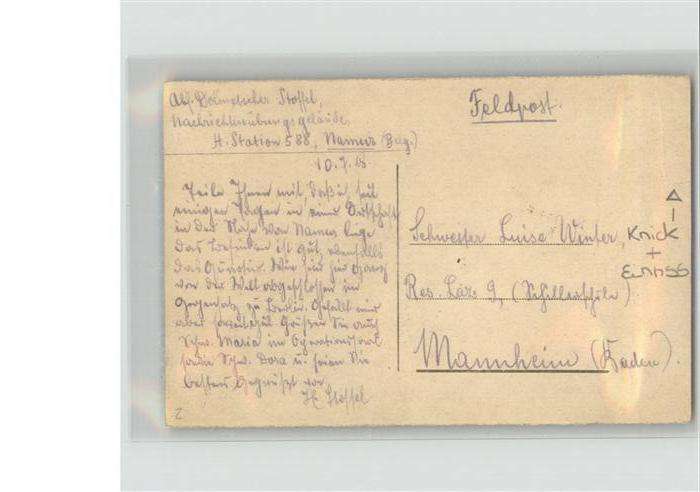 Abs. Dolmetscher Stoffel,
Nachrichtenübungsgelände,
H. Station 588, Namur
10.7.18
Teile Ihnen mit, daß ich seit
einigen Tagen in einer Ortschaft
in der Nähe von Namur liege
das Befinden ist gut, ebenfalls
das Quartier. Wir sind hier ganz
von der Welt abgeschlossen im
Gegensatz zu Berlin. Gefällt mir
aber Grüßen Sie auch
Schw. Maria im Operationssaal
sowie Schw. Dora u. seien Sie
bestens gegrüßt von
Stoffel
2
Feldpost.
Schwester Luise Winter,
Res. Laz. 2, (Schillerschule)
Mannheim (Baden).
Knick
+
Einriss